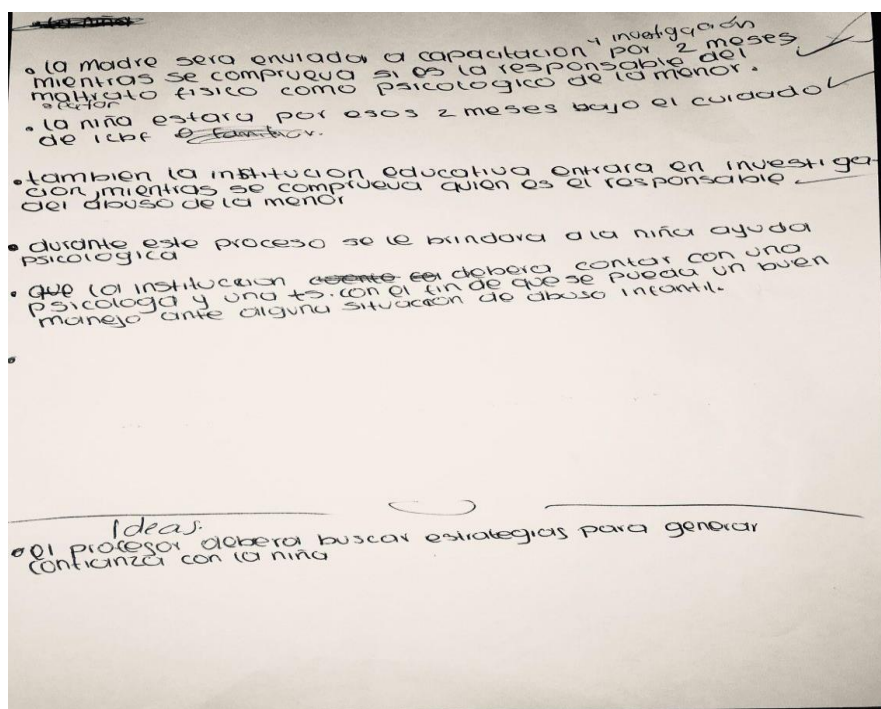 la niña
• la madre sera enviada a capacitacion y investigación por 2 meses
mientras se comprueva si es la responsable del
maltrato fisico como psicologico de la menor.
• la niña estara por esos 2 meses bajo el cuidado
de icbf o familiar.
• tambien la institucion educativa entrara en investiga-
cion, mientras se comprueva quien es el responsable
del abuso de la menor
• durante este proceso se le brindara a la niña ayuda
psicologica
• que la institucion debera contar con una
psicologa y una ts. con el fin de que se pueda un buen
manejo ante alguna situacion de abuso infantil.
Ideas.
• el profesor debera buscar estrategias para generar
confianza con la niña